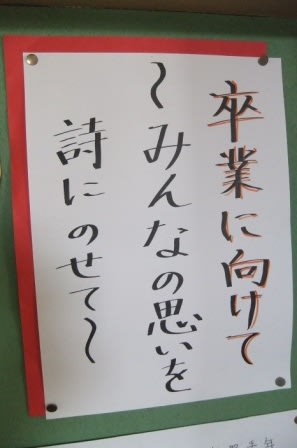 卒業に向けて
～みんなの思いを
詩にのせて～